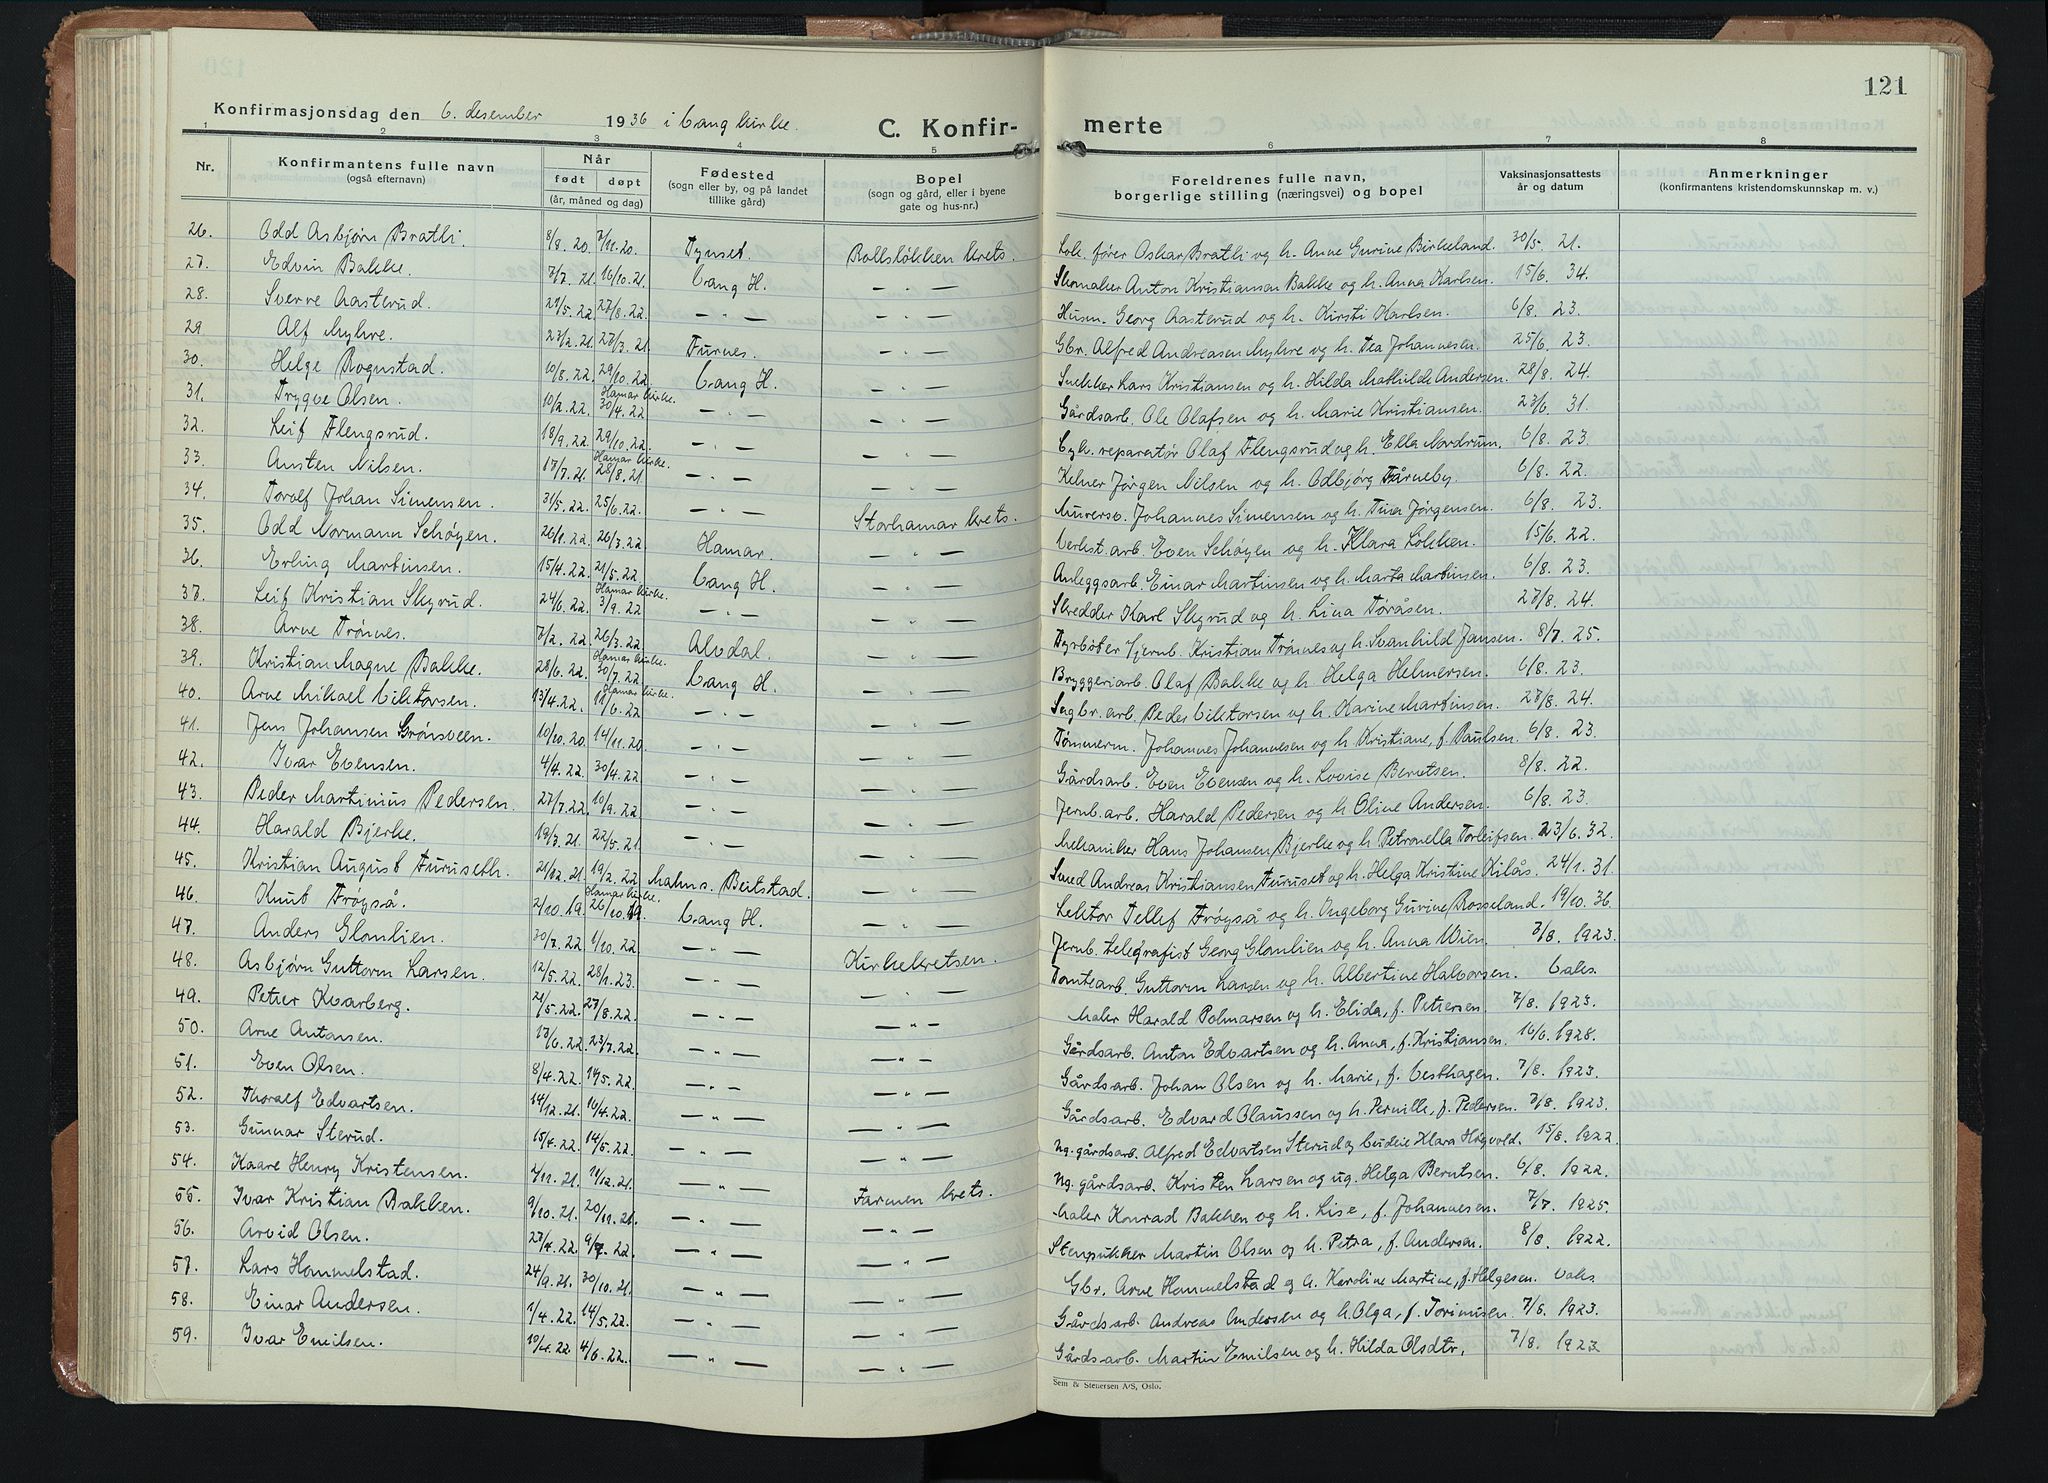 121
Konfirmasjonsdag den 6. desember 1936 i Vang kirke.
C. Konfir- merte
1 2 3 4 5 6 7 8
Nr. Konfirmantens fulle navn Når Fødested Bopel Foreldrenes fulle navn, Vaksinasjonsattests Anmerkninger
(også efternavn) født døpt (sogn eller by, og på landet (sogn og gård, eller i byene borgerlige stilling (næringsvei) og bopel år og datum (konfirmantens kristendomskunnskap m. v.)
(år, måned og dag) tillike gård) gate og hus-nr.)
26. Odd Asbjørn Bratli. 8/8. 20. 7/11. 20. Tynset. Rollsløkken krets. Lok. fører Oskar Bratli og h. Anne Gurine Birkeland. 30/5. 21.
27. Edvin Bakke. 7/7. 21. 16/10. 21. Vang H. — " — Skomaker Anton Kristiansen Bakke og h. Anna Karlsen. 15/6. 34.
28. Sverre Aasterud. 29/5. 22. 27/8. 22. — " — — " — Husm. Georg Aasterud og h. Kirsti Karlsen. 6/8. 23.
29 Alf Myhre. 23/2. 21. 27/3. 21. Furnes. — " — Gbr. Alfred Andreasen Myhre og h. Tea Johannesen. 25/6. 23.
30. Helge Rognstad. 10/8. 22. 29/10. 22. Vang H. — " — Snekker Lars Kristiansen og h. Hilda Mathilde Andersen. 28/8. 24.
31. Trygve Olsen. 10/2. 22. Hamar kirke. 30/4. 22 — " — — " — Gårdsarb. Ole Olafsen og h. Marie Kristiansen. 23/6. 31.
32. Leif Flengsrud. 18/9. 22. 29/10. 22. — " — — " — Cyk. reparatør Olaf Flengsrud og h. Ella Nordrum. 6/8. 23.
33. Austen Nilsen. 17/7. 21. Hamar kirke. 28/8. 21. — " — — " — Kelner Jørgen Nilsen og h. Odbjørg Tårneby. 6/8. 22.
34. Torolf Johan Simensen. 31/5. 22. 25/6. 22. — " — Storhamar krets. Murersv. Johannes Simensen og h. Tina Jørgensen. 6/8. 23.
35. Odd Normann Schøyen. 26/1. 22. 26/3. 22. Hamar. — " — Verkst. arb. Even Schøyen og h. Klara Løkken. 15/6. 22.
36. Erling Martinsen. 15/4. 22. 21/5. 22. Vang H. — " — Anleggsarb. Einar Martinsen og h. Marta Martinsen. 6/8. 23.
37. Leif Kristian Skyrud. 24/6. 22. Hamar kirke. 3/9. 22 — " — — " — Skredder Karl Skyrud og h. Lina Toråsen. 27/8. 24.
38. Arne Trønnes. 7/2. 22. 26/3. 22 Alvdal. — " — Fyrbøter v/jernb. Kristian Trønnes og h. Svanhild Jansen. 8/7. 25.
39. Kristian Magne Bakke. 28/6. 22. Hamar kirke. 30/7. 22 Vang H. — " — Bryggeriarb. Olaf Bakke og h. Helga Helmersen. 6/8. 23.
40. Arne Mikael Viktorsen. 13/4. 22. Hamar kirke. 11/6. 22 — " — — " — Sagbr. arb. Peder Viktorsen og h. Karine Martinsen. 27/8. 24.
41. Jens Johansen Grønsveen. 10/10. 20. 14/11. 20. — " — — " — Tømmerm. Johannes Johannesen og h. Kristiane, f. Paulsen. 6/8. 23.
42. Ivar Evensen. 4/4. 22. 30/4. 22 — " — — " — Gårdsarb. Even Evensen og h. Lovise Berntsen. 8/8. 22.
43. Peder Martinius Pedersen. 27/7. 22. 10/9. 22 — " — — " — Jernb. arb. Harald Pedersen og h. Oline Andersen. 6/8. 23.
44. Harald Bjerke. 19/3. 21. 22/5. 21 — " — — " — Mekaniker Hans Johansen Bjerke og h. Petronella Torleifsen. 23/6. 32.
45. Kristian August Furuseth. 21/12. 21. 19/2. 22 Malm s. Beitstad. — " — Smed Andreas Kristiansen Furuset og h. Helga Kristine Kilås. 24/1. 31.
46. Knut Frøyså. 2/10. 19. Hamar kirke. 26/10. 19. Vang H. — " — Lektor Tellef Frøyså og h. Ingeborg Gurine Rosseland. 19/10. 36.
47. Anders Glomlien. 30/7. 22. 1/10. 22 — " — Kirkekretsen. Jernb. telegrafist Georg Glomlien og h. Anna Wien. 7/8. 1923.
48. Asbjørn Guttorm Larsen. 12/5. 22. 28/1. 23. — " — — " — Tomtearb. Guttorm Larsen og h. Albertine Halvorsen. Vaks.
49. Petter Kvarberg. 21/5. 22. 27/8. 22. — " — — " — Maler Harald Polmarsen og h. Elida, f. Pettersen. 7/8. 1923.
50. Arne Antonsen. 17/6. 22. 23/7. 22. — " — — " — Gårdsarb. Anton Edvartsen og h. Anna, f. Kristiansen. 16/6. 1928.
51. Even Olsen. 8/4. 22. 14/5. 22. — " — — " — Gårdsarb. Johan Olsen og h. Marie, f. Vesthagen. 7/8. 1923.
52. Thoralf Edvartsen. 14/12. 21. 16/4. 22. — " — — " — Gårdsarb. Edvard Olaussen og h. Pernille, f. Pedersen. 7/8. 1923.
53. Gunnar Sterud. 15/4. 22. 14/5. 22. — " — — " — Ug. gårdsarb. Alfred Edvartsen Sterud og budeie Klara Høgvold. 15/8. 1922.
54. Kaare Henry Kristensen. 2/11. 21. 11/12. 21. — " — Farmen krets. Ug. gårdsarb. Kristen Larsen og ug. Helga Berntsen. 6/8. 1922.
55. Ivar Kristian Bakken. 9/10. 21. 20/11. 21. — " — — " — Maler Konrad Bakken og h. Lise, f. Johannesen. 7/7. 1925.
56. Arvid Olsen. 27/4. 22. 9/7. 22. — " — — " — Stensukker Martin Olsen og h. Petra, f. Andersen. 8/8. 1922.
57. Lars Hommelstad. 24/9. 21. 30/10. 21. — " — — " — Gbr. Arne Hommelstad og h. Karoline Martine, f. Helgesen. Vaks.
58. Einar Andersen. 1/4. 22. 14/5. 22. — " — — " — Gårdsarb. Andreas Andersen og h. Olga, f. Torimusen. 7/8. 1923.
59. Ivar Emilsen. 10/4. 22 4/6. 22. — " — — " — Gårdsarb. Martin Emilsen og h. Hilda Olsdtr. 7/8. 1923
Sem & Stenersen A/S, Oslo.